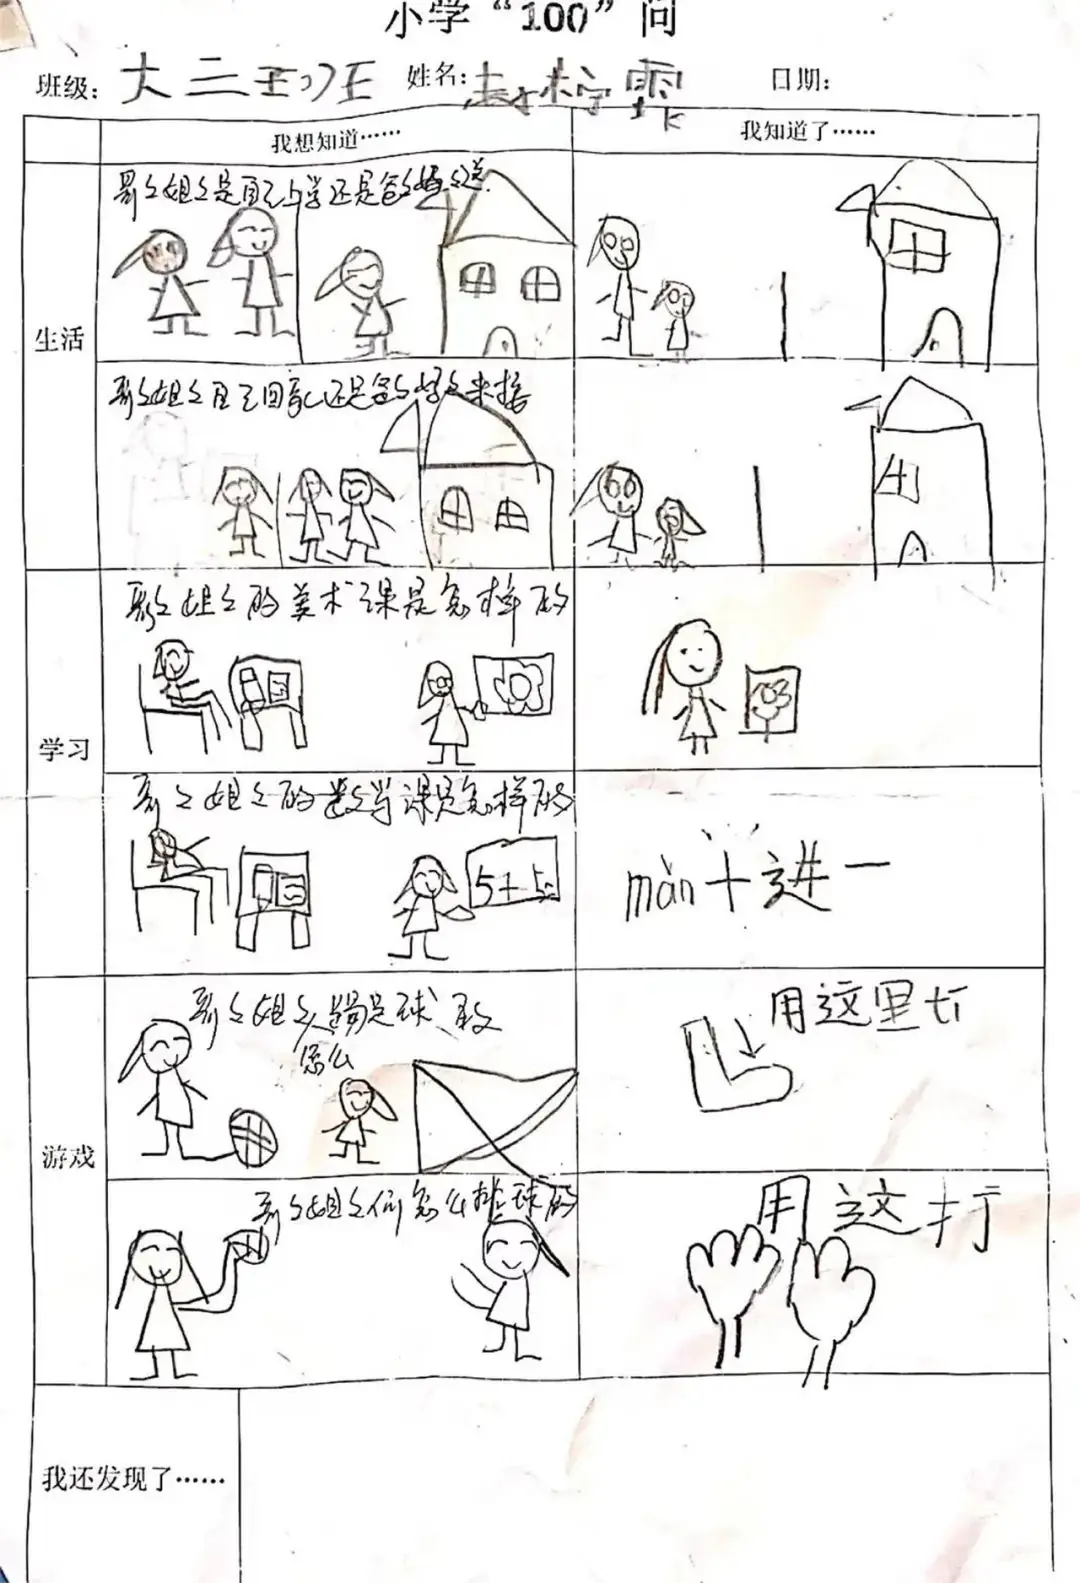 小学“100”问
班级：大二班 姓名： 日期：
我想知道…… 我知道了……
生活
哥々姐々是自己上学还是爸々妈々送
哥々姐々自己回家还是爸々妈々来接
学习
哥々姐々的美术课是怎样的
哥々姐々的数学课是怎样的
5+5
màn十进一
游戏
哥々姐々踢足球
怎么
用这里打
哥々姐々们怎么排球的
用这打
我还发现了……